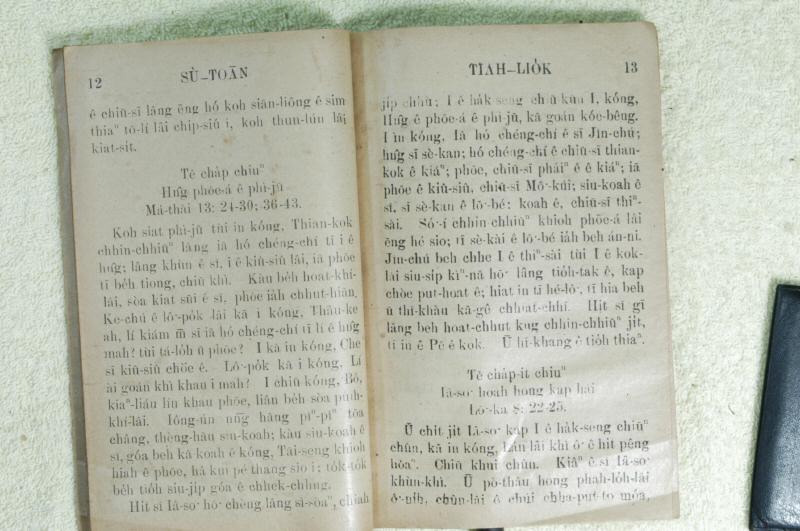 12 SÙ-TOĀN
ê chiū-sī lâng ēng hó koh siān-liông ê sim
thiaⁿ tō-lí lâi chip-siú i, koh thun-lún lâi
kiat-sit.
Tē cha̍p chiuⁿ
Hn̂g phōe-á ê phì-jū
Má-thài 13: 24-30; 36-43.
Koh siat phì-jū tùi in kóng, Thian-kok
chhin-chhiūⁿ lâng iā hó chéng-chí tī i ê
hn̂g; lâng khùn ê sî, i ê kiû-siû lâi, iā phōe
tī be̍h tiong, chiū khì. Kàu be̍h hoat-khí-
lâi, sòa kiat sūi ê sî, phōe ia̍h chhut-hiān.
Ke-chú ê lô-po̍k lâi kā i kóng, Thâu-ke
ah, lí kiám m̄ sī iā hó chéng-chí tī lí ê hn̂g
mah? tùi tá-lo̍h ū phōe? I kā in kóng, Che
sī kiû-siû chòe ê. Lô-po̍k kā i kóng, Lí
ài goán khì khau i mah? I chiū kóng, Bô,
kiaⁿ-liáu lín khau phōe, liân be̍h sòa puih-
khí-lâi. Iông-ún nn̄g hāng pîⁿ-pîⁿ tōa
châng, thèng-hāu siu-koah; kàu siu-koah ê
sî, góa beh kā koah ê kóng, Tai-seng khioh
hiah ê phōe, hâ kui pé thang sio i; to̍k-to̍k
be̍h tio̍h siu-ji̍p góa ê chhek-chhng.
Hit sî Iâ-so͘ hō͘ chèng lâng sì-sòaⁿ, chiah
TIAH-LIO̍K 13
ji̍p chhù; I ê ha̍k-seng chiū kūn I, kóng,
Hn̂g ê phōe-á ê phì-jū, kā goán kóe-bêng.
I ìn kóng, Iā hó chéng-chí ê sī Jîn-chú;
hn̂g sī sè-kan; hó chéng-chí ê chiū-sī thian-
kok ê kiáⁿ; phōe, chiū-sī pháiⁿ ê ê kiáⁿ; iā
phōe ê kiû-siû, chiū-sī Mô͘-kúi; siu-koah ê
sî, sī sè-kan ê lō͘-bé; koah ê, chiū-sī thiⁿ-
sài. Só͘-í chhin-chhiūⁿ khioh phōe-á lâi
ēng hé sio; tī sè-kài ê lō͘-bé ia̍h beh án-ni.
Jîn-chú beh chhe I ê thiⁿ-sài tùi I ê kok-
lāi siu-si̍p kìⁿ-nā hō͘ lâng tio̍h-tak ê, kap
chòe put-hoat ê; hiat in tī hé-lô͘, tī hia beh
ū thî-khàu kā-gê chhoat-chhī. Hit sî gī
lâng beh hoat-chhut kng chhin-chhiūⁿ ji̍t,
tī in ê Pē ê kok. Ū hī-khang ê tio̍h thiaⁿ.
Tē cha̍p-it chiuⁿ
Iâ-so͘ hoah hong kap hái
Lō͘-ka 8: 22-25.
Ū chi̍t ji̍t Iâ-so͘ kap I ê ha̍k-seng chiūⁿ
chûn, kā in kóng, Lán lâi khì ô͘ ê hit pêng
hōaⁿ. Chiū khui chûn. Kiâⁿ ê sî Iâ-so͘
khùn-khì. Ū pō-thâu hong phah-lo̍h-lâi
ô͘-ni̍h, chûn-lāi ê chúi chha-put-to móa,